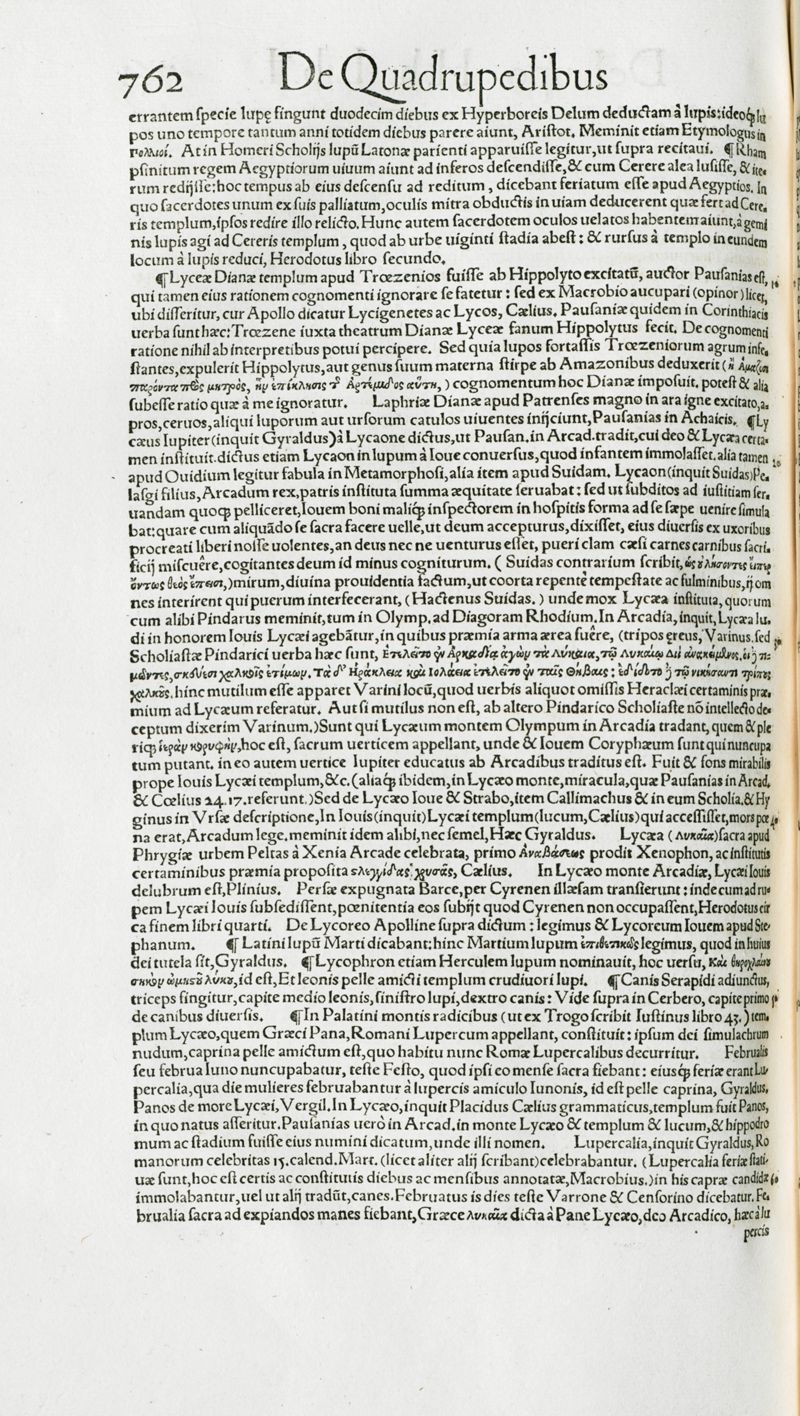 762 De Quadrupedibus
errantem ſpecie lupę fingunt duodecim diebus ex Hyperboreis Delum deductam à lupis: ideoq́; lu
pos uno tempore tantum anni totidem diebus parere aiunt, Ariſtot. Meminit etiam Etymologus in
At in Homeri Scholijs lupũ Latonæ parienti apparuiſſe legitur, ut ſupra recitaui. ¶ Rham
pſinitum regem Aegyptiorum uiuum aiunt ad inferos deſcendiſſe, & cum Cerere alea luſiſſe, & ite-
rum redijſſe: hoc tempus ab eius deſcenſu ad reditum, dicebant feriatum eſſe apud Aegyptios. In
quo ſacerdotes unum ex ſuis palliatum, oculis mitra obductis in uiam deducerent quæ fert ad Cere-
ris templum, ipſos redire illo relicto. Hunc autem ſacerdotem oculos uelatos habentem aiunt, à gemi
nis lupis agi ad Cereris templum, quod ab urbe uiginti ſtadia abeſt: & rurſus à templo in eundem
locum à lupis reduci, Herodotus libro ſecundo.
¶ Lyceæ Dianæ templum apud Trœzenios fuiſſe ab Hippolyto excitatũ, auctor Pauſanias eſt,
qui tamen eius rationem cognomenti ignorare ſe fatetur: ſed ex Macrobio aucupari (opinor) licet,
ubi differitur, cur Apollo dicatur Lycigenetes ac Lycos, Cælius. Pauſaniæ quidem in Corinthiacis
uerba ſunt hæc: Trœzene iuxta theatrum Dianæ Lyceæ fanum Hippolytus fecit. De cognomenti
ratione nihil ab interpretibus potui percipere. Sed quia lupos fortaſſis Trœzeniorum agrum infe-
ſtantes, expulerit Hippolytus, aut genus ſuum materna ſtirpe ab Amazonibus deduxerit (ἢ Ἀμαζόσι
μητρὸς, ἦν ἐπίκλησις Ἀρτέμιδος αὕτη,) cognomentum hoc Dianæ impoſuit. poteſt & alia
ſubeſſe ratio quæ à me ignoratur. Laphriæ Dianæ apud Patrenſes magno in ara igne excitato, a-
pros, ceruos, aliqui luporum aut urſorum catulos uiuentes inijciunt, Pauſanias in Achaicis. ¶ Ly
cæus Iupiter (inquit Gyraldus) à Lycaone dictus, ut Pauſan. in Arcad. tradit, cui deo & Lycæa certa-
men inſtituit. dictus etiam Lycaon in lupum à Ioue conuerſus, quod infantem immolaſſet. alia tamen
apud Ouidium legitur fabula in Metamorphoſi, alia item apud Suidam. Lycaon (inquit Suidas) Pe-
laſgi filius, Arcadum rex, patris inſtituta ſumma æquitate ſeruabat: ſed ut ſubditos ad iuſtitiam ſer-
uandam quoq; pelliceret, Iouem boni maliq́; inſpectorem in hoſpitis forma ad ſe ſæpe uenire ſimula
bat: quare cum aliquãdo ſe ſacra facere uelle, ut deum accepturus, dixiſſet, eius diuerſis ex uxoribus
procreati liberi noſſe uolentes, an deus nec ne uenturus eſſet, pueri clam cæſi carnes carnibus ſacri-
ficij miſcuêre, cogitantes deum id minus cogniturum. (Suidas contrarium ſcribit,
θεὸς) mirum, diuina prouidentia factum, ut coorta repentè tempeſtate ac fulminibus, ij om
nes interirent qui puerum interfecerant, (Hactenus Suidas.) unde mox Lycæa inſtituta, quorum
cum alibi Pindarus meminit, tum in Olymp. ad Diagoram Rhodium. In Arcadia, inquit, Lycæa lu-
di in honorem Iouis Lycæi agebãtur, in quibus præmia arma ærea fuêre, (tripos ęreus, Varinus. ſed
Scholiaſtæ Pindarici uerba hæc ſunt, Ἀρκαδίᾳ ἀγὼν τὰ Λύκαια, τῷ Λυκαίῳ Διὶ
Τὰ δ' Ἡράκλεια καὶ Ἰολάεια ταῖς Θήβαις:
hinc mutilum eſſe apparet Varini locũ, quod uerbis aliquot omiſſis Heraclæi certaminis præ-
mium ad Lycæum referatur. Aut ſi mutilus non eſt, ab altero Pindarico Scholiaſte nõ intellecto de-
ceptum dixerim Varinum.) Sunt qui Lycæum montem Olympum in Arcadia tradant, quem & ple
riq́; ἱερὰν κορυφὴν, hoc eſt, ſacrum uerticem appellant, unde & Iouem Coryphæum ſunt qui nuncupa
tum putant. in eo autem uertice Iupiter educatus ab Arcadibus traditus eſt. Fuit & fons mirabilis
prope Iouis Lycæi templum, &c. (aliaq́; ibidem, in Lycæo monte, miracula, quæ Pauſanias in Arcad.
& Cœlius 24.17. referunt.) Sed de Lycæo Ioue & Strabo, item Callimachus & in eum Scholia. & Hy
ginus in Vrſæ deſcriptione, In Iouis (inquit) Lycæi templum (lucum, Cælius) qui acceſſiſſet, mors pœ
na erat, Arcadum lege. meminit idem alibi, nec ſemel, Hæc Gyraldus. Lycæa (λυκαῖα) ſacra apud
Phrygiæ urbem Peltas à Xenia Arcade celebrata, primo Ἀναβάσεως prodit Xenophon, ac inſtitutis
certaminibus præmia propoſita χρυσᾶς, Cælius. In Lycæo monte Arcadiæ, Lycæi Iouis
delubrum eſt, Plinius. Perſæ expugnata Barce, per Cyrenen illæſam tranſierunt: inde cum ad ru-
pem Lycæi Iouis ſubſediſſent, pœnitentia eos ſubijt quod Cyrenen non occupaſſent, Herodotus cir
ca finem libri quarti. De Lycoreo Apolline ſupra dictum: legimus & Lycoreum Iouem apud Ste-
phanum. ¶ Latini lupũ Marti dicabant: hinc Martium lupum ἐπιθετικῶς legimus, quod in huius
dei tutela ſit, Gyraldus. ¶ Lycophron etiam Herculem lupum nominauit, hoc uerſu,
λύκου, id eſt, Et leonis pelle amicti templum crudiuori lupi. ¶ Canis Serapidi adiunctus,
triceps fingitur, capite medio leonis, ſiniſtro lupi, dextro canis: Vide ſupra in Cerbero, capite primo
de canibus diuerſis. ¶ In Palatini montis radicibus (ut ex Trogo ſcribit Iuſtinus libro 43.) tem-
plum Lycæo, quem Græci Pana, Romani Lupercum appellant, conſtituit: ipſum dei ſimulachrum
nudum, caprina pelle amictum eſt, quo habitu nunc Romæ Lupercalibus decurritur. Februalis
ſeu februa Iuno nuncupabatur, teſte Feſto, quod ipſi eo menſe ſacra fiebant: eiusq́; feriæ erant Lu-
percalia, qua die mulieres februabantur à lupercis amiculo Iunonis, id eſt pelle caprina, Gyraldus.
Panos de more Lycæi, Vergil. In Lycæo, inquit Placidus Cælius grammaticus, templum fuit Panos,
in quo natus aſſeritur. Pauſanias uerò in Arcad. in monte Lycæo & templum & lucum, & hippodro
mum ac ſtadium fuiſſe eius numini dicatum, unde illi nomen. Lupercalia, inquit Gyraldus, Ro
manorum celebritas 15. calend. Mart. (licet aliter alij ſcribant) celebrabantur. (Lupercalia feriæ ſtati-
uæ ſunt, hoc eſt certis ac conſtitutis diebus ac menſibus annotatæ, Macrobius.) in his capræ candidæ
immolabantur, uel ut alij tradũt, canes. Februatus is dies teſte Varrone & Cenſorino dicebatur. Fe-
brualia ſacra ad expiandos manes fiebant, Græce λυκαῖα dicta à Pane Lycæo, deo Arcadico, hæc à lu
percis